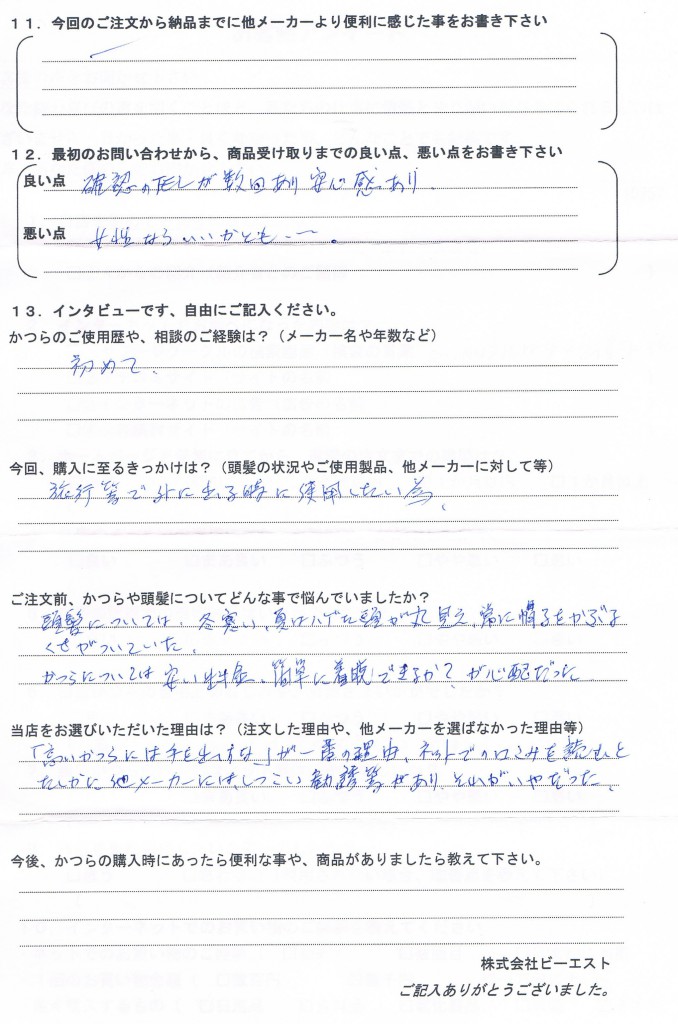 １１．今回のご注文から納品までに他メーカーより便利に感じた事をお書き下さい
１２．最初のお問い合わせから、商品受け取りまでの良い点、悪い点をお書き下さい
良い点 確認のTELが数回あり安心感あり。
悪い点 女性ならいいかとも・・〜。
１３．インタビューです、自由にご記入ください。
かつらのご使用歴や、相談のご経験は？（メーカー名や年数など）
初めて、
今回、購入に至るきっかけは？（頭髪の状況やご使用製品、他メーカーに対して等）
旅行等で外に出る時に使用したい為、
ご注文前、かつらや頭髪についてどんな事で悩んでいましたか？
頭髪については、冬寒い、夏はハゲた頭が丸見え、常に帽子をかぶる
くせがついていた、
かつらについては安い料金、簡単に着脱できるか？が心配だった
当店をお選びいただいた理由は？（注文した理由や、他メーカーを選ばなかった理由等）
「高いかつらには手を出すな」が一番の理由、ネットでの口コミを読むと
たしかに他メーカーには、しつこい勧誘等があり、それがいやだった、
今後、かつらの購入時にあったら便利な事や、商品がありましたら教えて下さい。
株式会社ビーエスト
ご記入ありがとうございました。